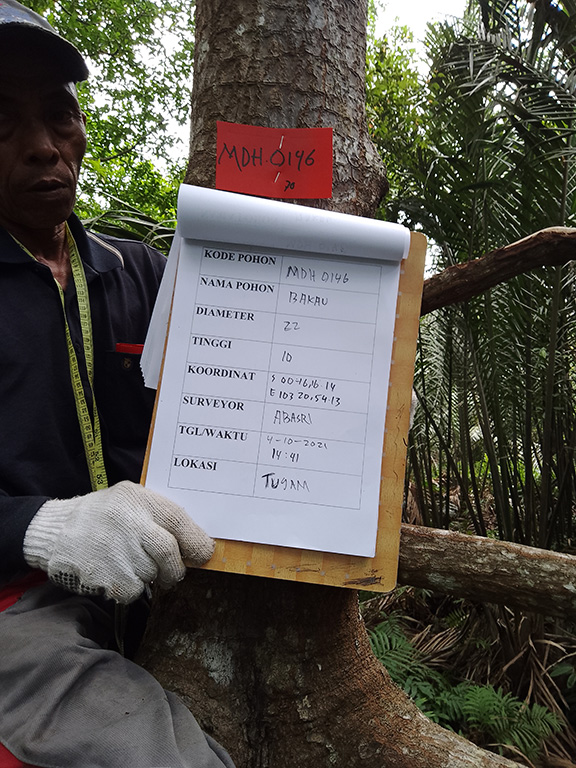 MDH.0146
70
KODE POHON MDH 0146
NAMA POHON BAKAU
DIAMETER 22
TINGGI 10
KOORDINAT S 00.46,16.14
E 103 20,54.13
SURVEYOR ABASRI
TGL/WAKTU 4-10-2021
14:41
LOKASI TUJAM